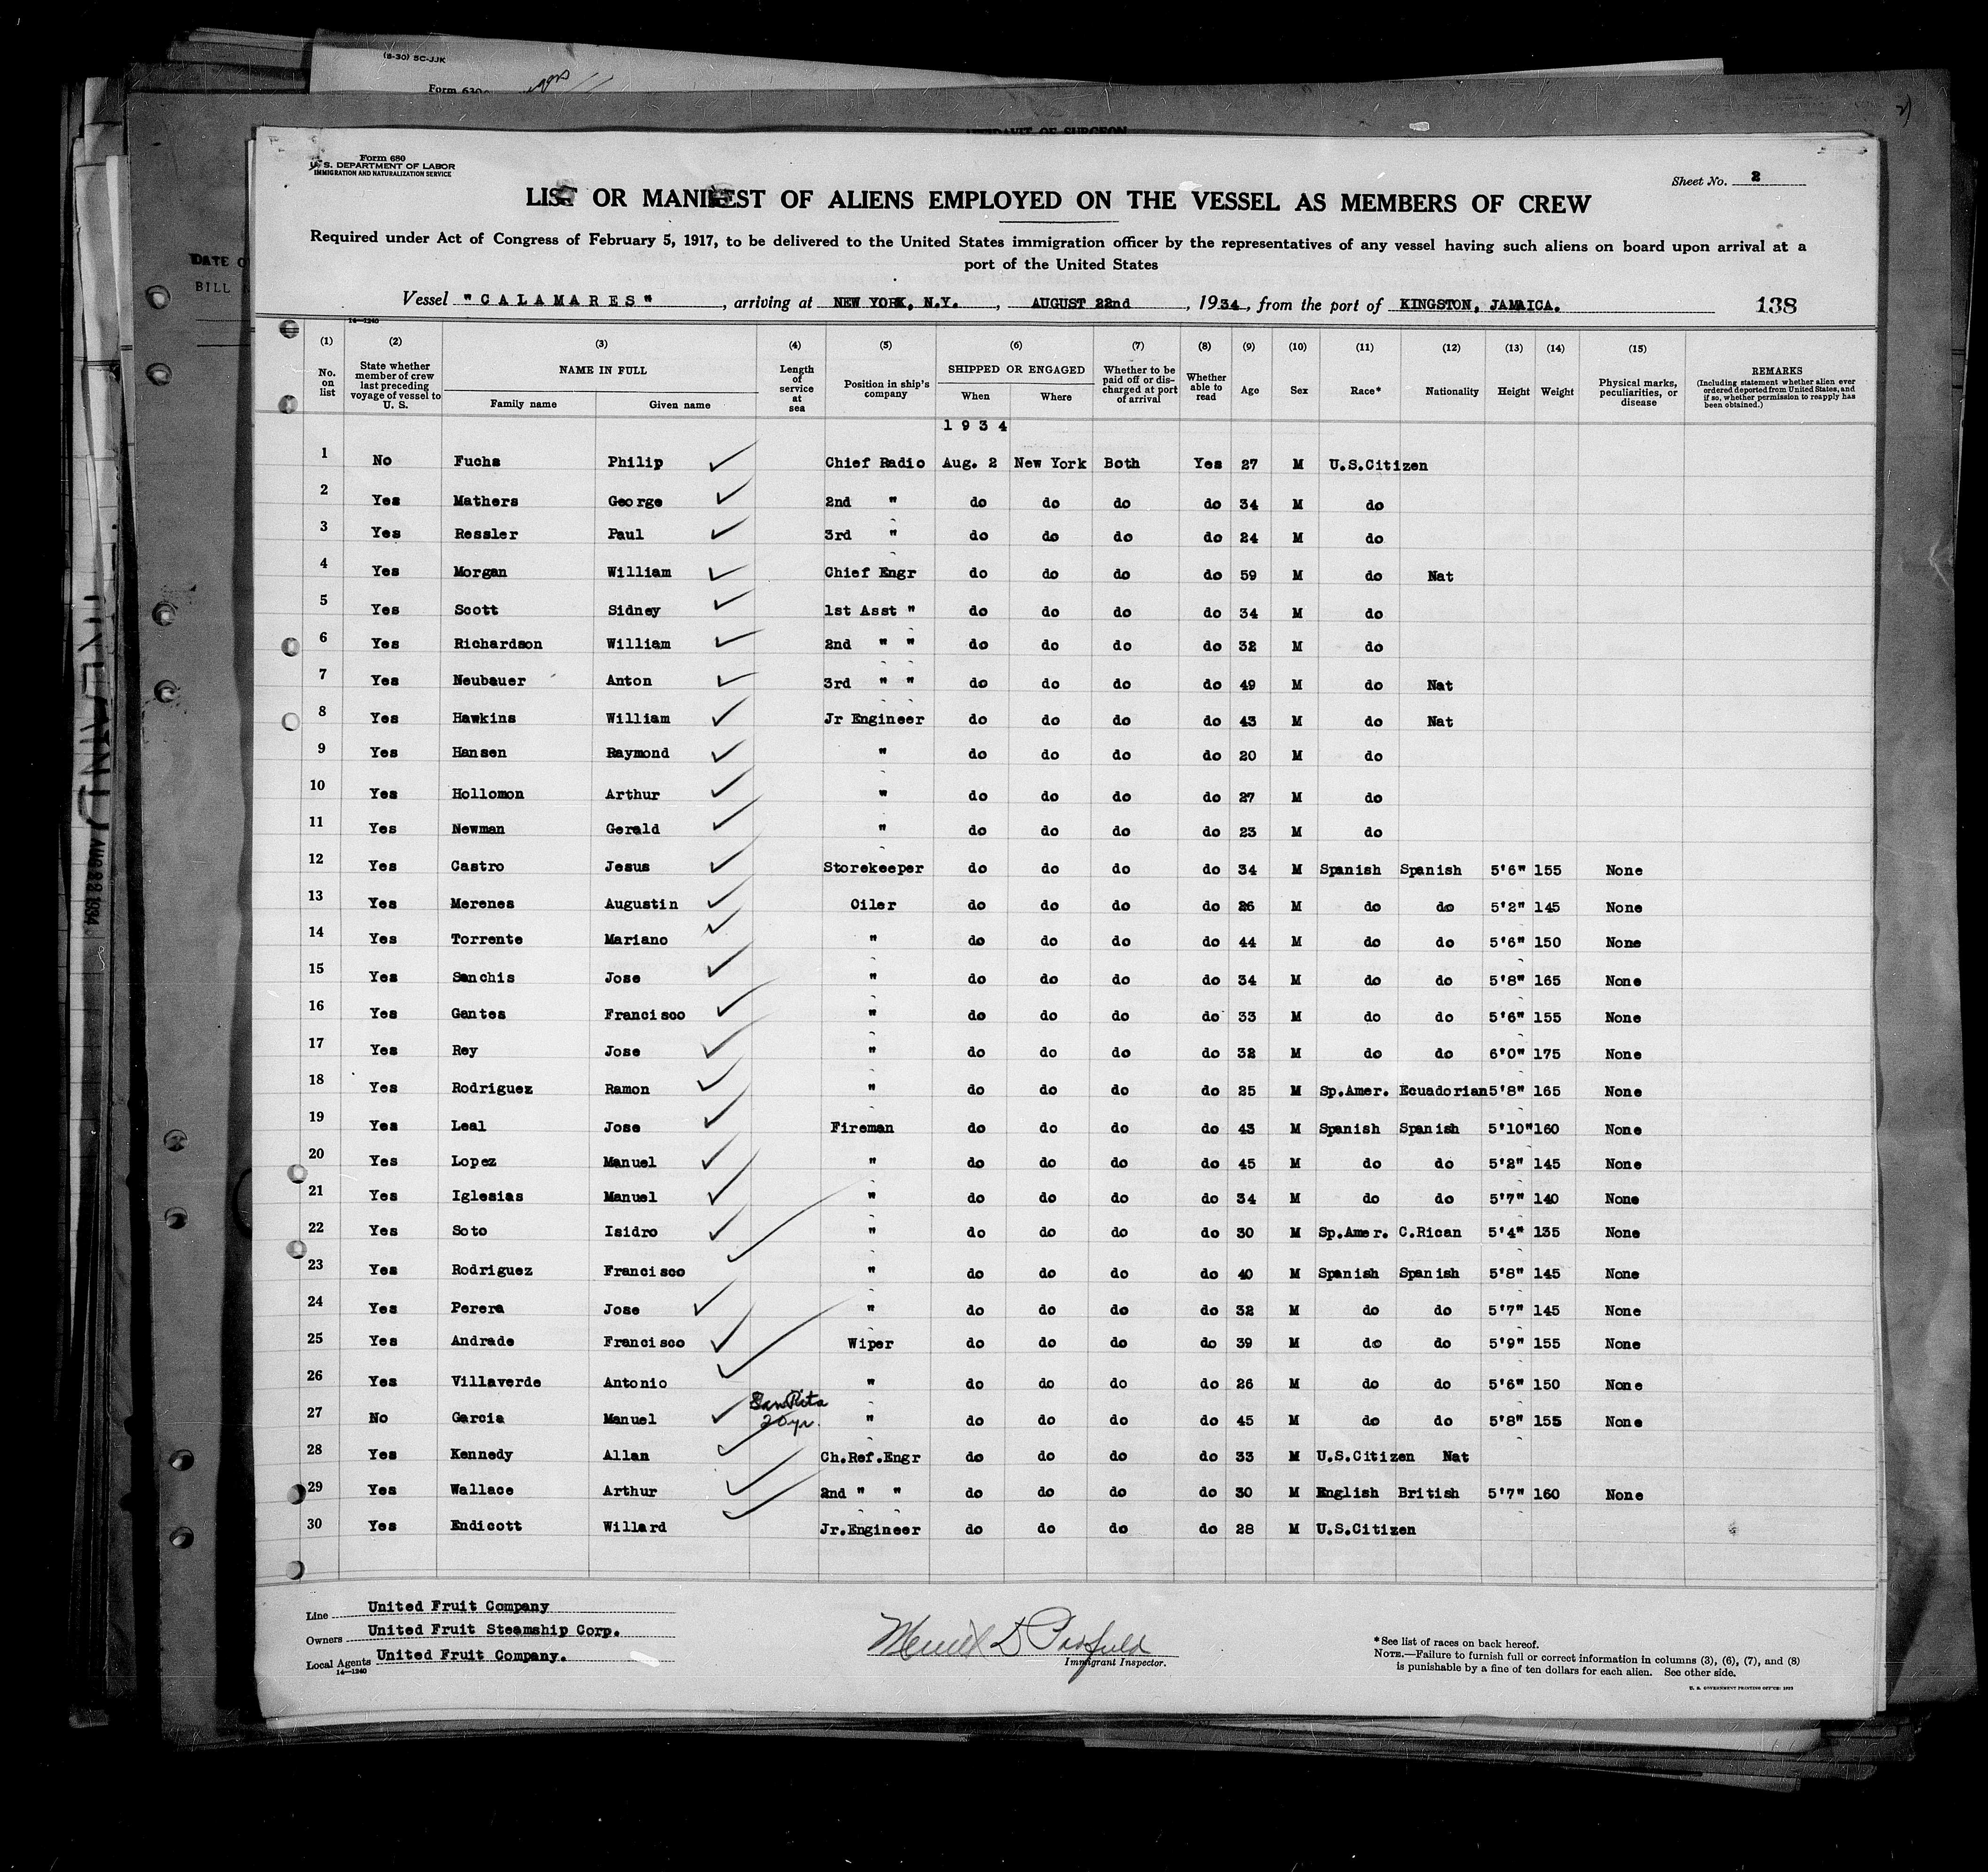 (8-30) 5C-JJK
Form 630
AFFIDAVIT OF SURGEON
DATE O
BILL
AUG 22 1934
Form 680
U. S. DEPARTMENT OF LABOR
IMMIGRATION AND NATURALIZATION SERVICE
Sheet No. 2
LIST OR MANIFEST OF ALIENS EMPLOYED ON THE VESSEL AS MEMBERS OF CREW
Required under Act of Congress of February 5, 1917, to be delivered to the United States immigration officer by the representatives of any vessel having such aliens on board upon arrival at a
port of the United States
Vessel "CALAMARES", arriving at NEW YORK, N.Y., AUGUST 22nd, 1934, from the port of KINGSTON, JAMAICA. 138
14—1240
(1) (2) (3) (4) (5) (6) (7) (8) (9) (10) (11) (12) (13) (14) (15)
No. on list
State whether member of crew last preceding voyage of vessel to U. S.
NAME IN FULL
Family name Given name
Length of service at sea
Position in ship's company
SHIPPED OR ENGAGED
When Where
Whether to be paid off or discharged at port of arrival
Whether able to read
Age Sex Race* Nationality Height Weight
Physical marks, peculiarities, or disease
REMARKS
(Including statement whether alien ever ordered deported from United States, and if so, whether permission to reapply has been obtained.)
1934
1 No Fuchs Philip ✓ Chief Radio Aug. 2 New York Both Yes 27 M U.S.Citizen
2 Yes Mathers George ✓ 2nd " do do do do 34 M do
3 Yes Ressler Paul ✓ 3rd " do do do do 24 M do
4 Yes Morgan William ✓ Chief Engr do do do do 59 M do Nat
5 Yes Scott Sidney ✓ 1st Asst " do do do do 34 M do
6 Yes Richardson William ✓ 2nd " " do do do do 32 M do
7 Yes Neubauer Anton ✓ 3rd " " do do do do 49 M do Nat
8 Yes Hawkins William ✓ Jr Engineer do do do do 43 M do Nat
9 Yes Hansen Raymond ✓ " do do do do 20 M do
10 Yes Hollomon Arthur ✓ " do do do do 27 M do
11 Yes Newman Gerald ✓ " do do do do 23 M do
12 Yes Castro Jesus ✓ Storekeeper do do do do 34 M Spanish Spanish 5'6" 155 None
13 Yes Merenes Augustin ✓ Oiler do do do do 26 M do do 5'2" 145 None
14 Yes Torrente Mariano ✓ " do do do do 44 M do do 5'6" 150 None
15 Yes Sanchis Jose ✓ " do do do do 34 M do do 5'8" 165 None
16 Yes Gantes Francisco ✓ " do do do do 33 M do do 5'6" 155 None
17 Yes Rey Jose ✓ " do do do do 32 M do do 6'0" 175 None
18 Yes Rodriguez Ramon ✓ " do do do do 25 M Sp.Amer. Ecuadorian 5'8" 165 None
19 Yes Leal Jose ✓ Fireman do do do do 43 M Spanish Spanish 5'10" 160 None
20 Yes Lopez Manuel ✓ " do do do do 45 M do do 5'2" 145 None
21 Yes Iglesias Manuel ✓ " do do do do 34 M do do 5'7" 140 None
22 Yes Soto Isidro ✓ " do do do do 30 M Sp.Amer. C.Rican 5'4" 135 None
23 Yes Rodriguez Francisco ✓ " do do do do 40 M Spanish Spanish 5'8" 145 None
24 Yes Perera Jose ✓ " do do do do 32 M do do 5'7" 145 None
25 Yes Andrade Francisco ✓ Wiper do do do do 39 M do do 5'9" 155 None
26 Yes Villaverde Antonio ✓ " do do do do 26 M do do 5'6" 150 None
27 No Garcia Manuel ✓ 20 yr. " do do do do 45 M do do 5'8" 155 None
28 Yes Kennedy Allan ✓ Ch.Ref.Engr do do do do 33 M U.S.Citizen Nat
29 Yes Wallace Arthur ✓ 2nd " " do do do do 30 M English British 5'7" 160 None
30 Yes Endicott Willard ✓ Jr.Engineer do do do do 28 M U.S.Citizen
Line United Fruit Company
Owners United Fruit Steamship Corp.
Local Agents United Fruit Company.
14—1240
Immigrant Inspector.
*See list of races on back hereof.
NOTE.—Failure to furnish full or correct information in columns (3), (6), (7), and (8)
is punishable by a fine of ten dollars for each alien. See other side.
U. S. GOVERNMENT PRINTING OFFICE: 1933